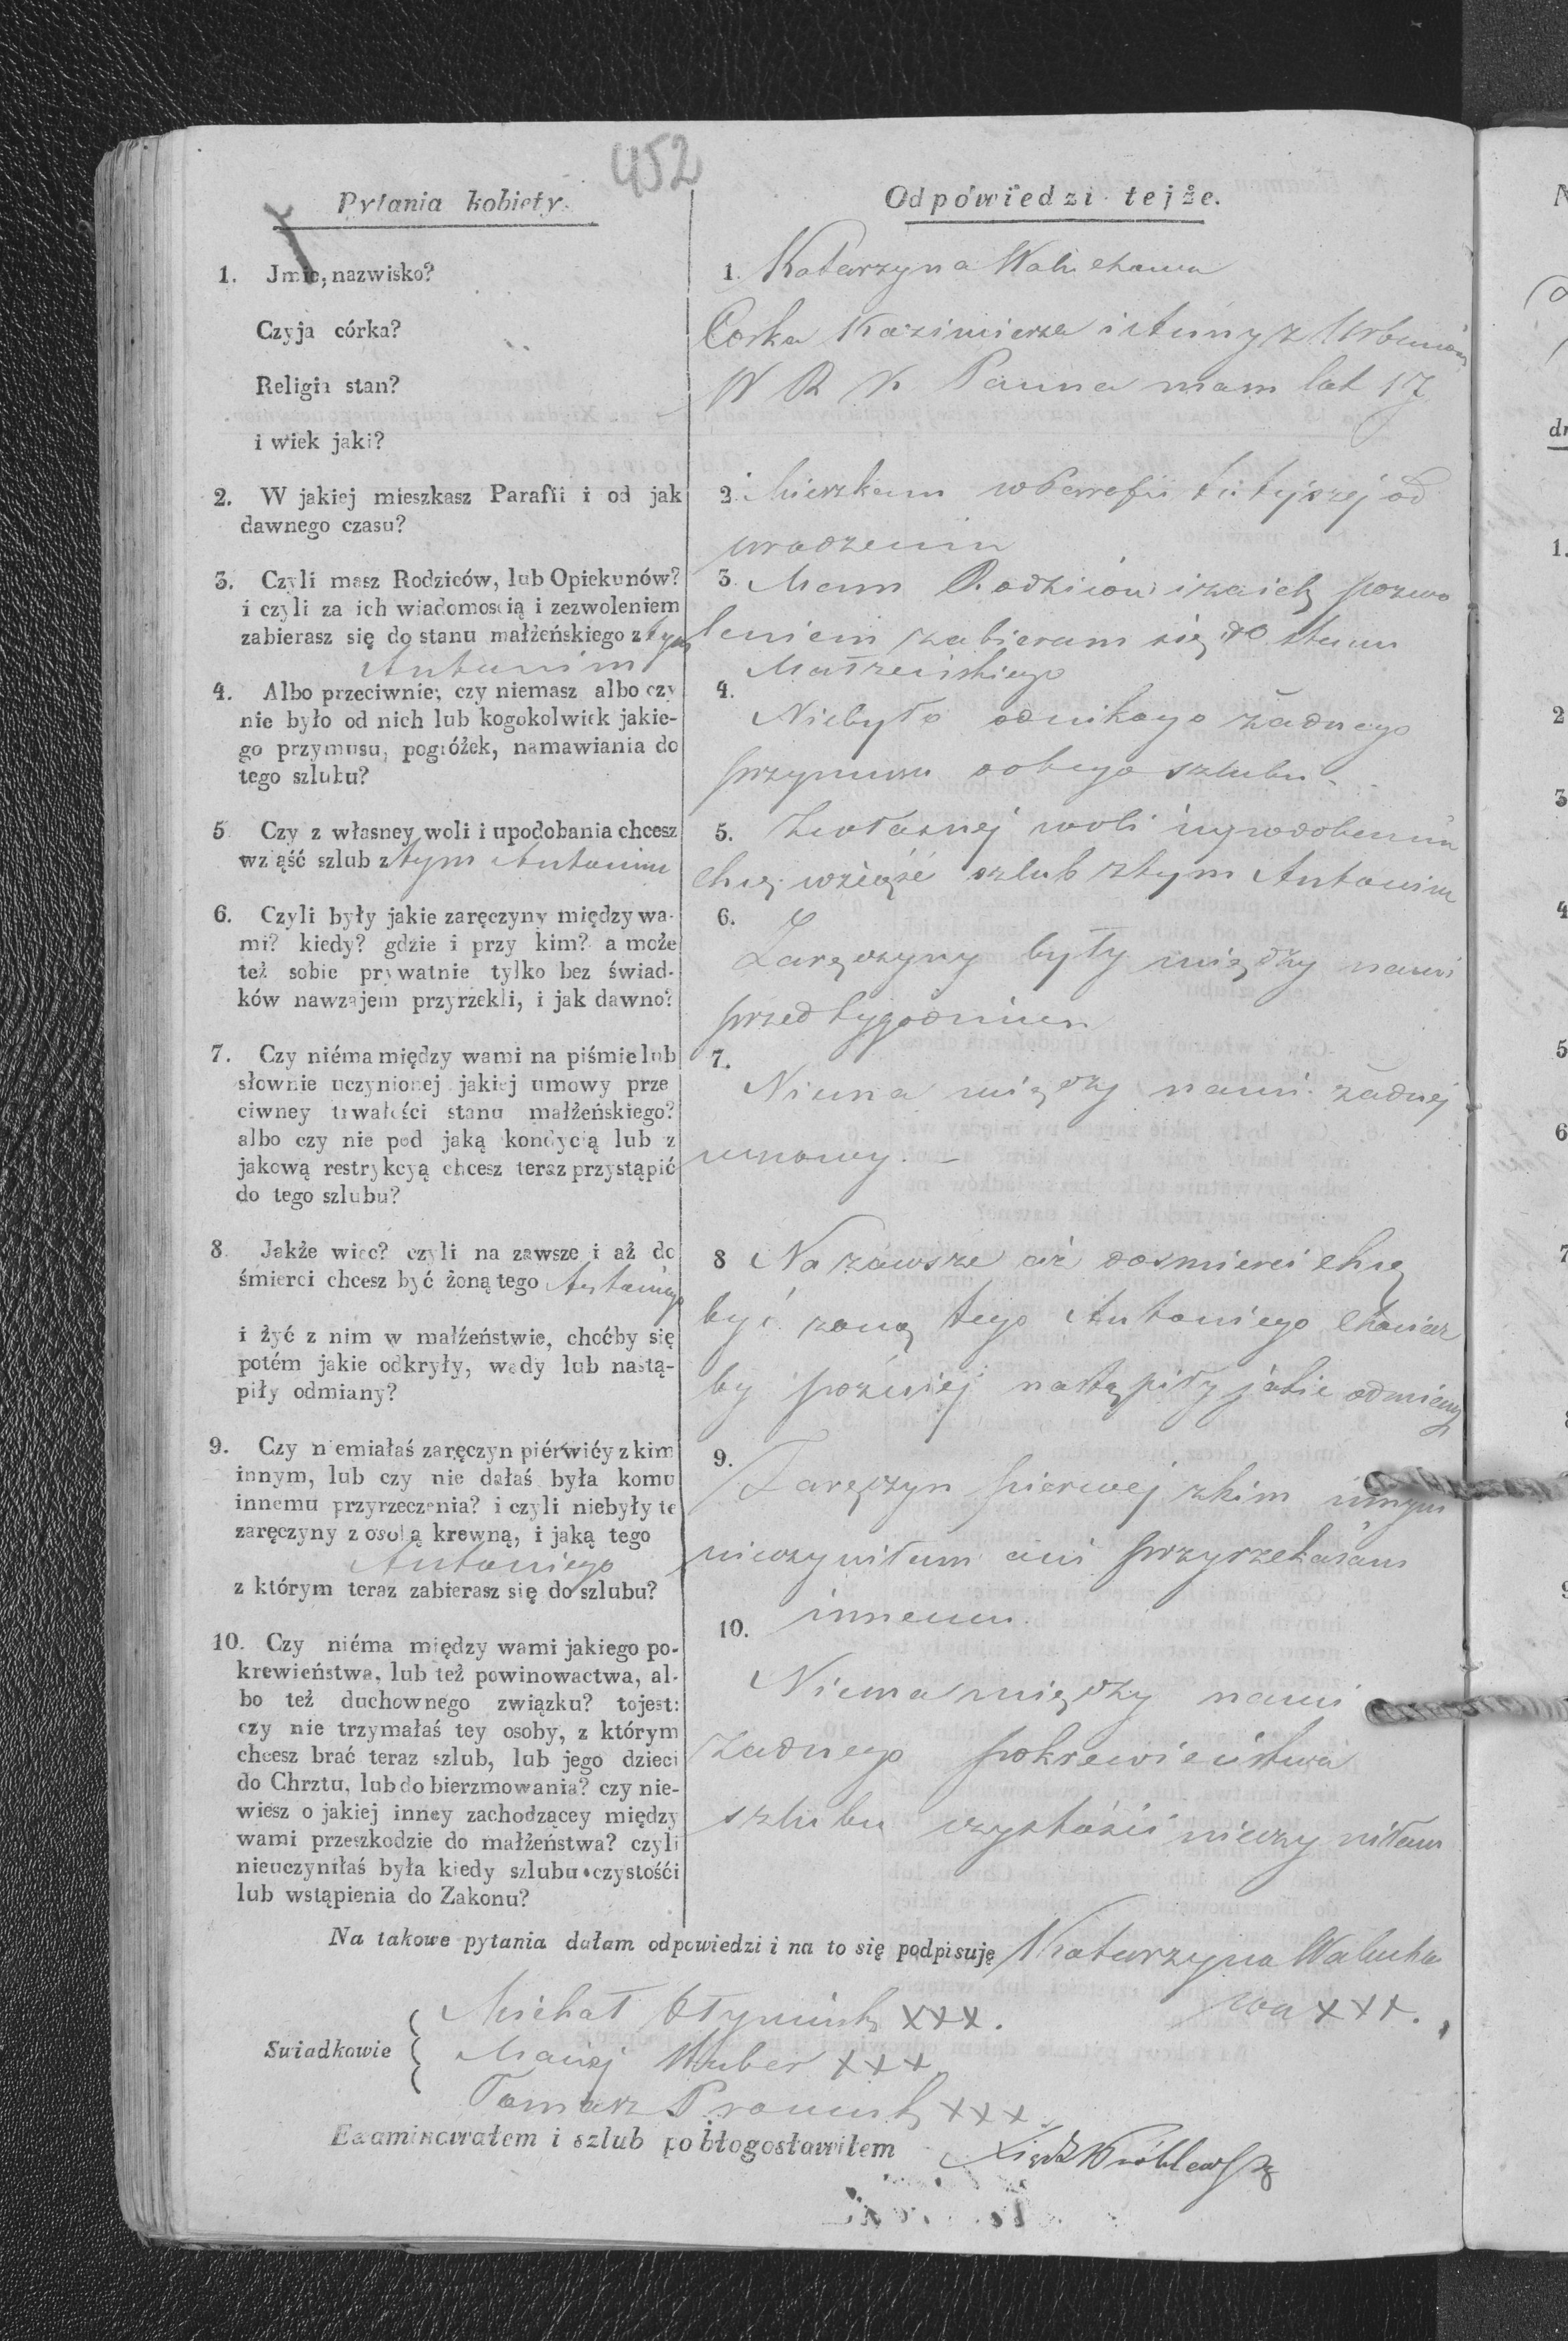 452
Pytania kobiety.
1. Jmie, nazwisko?
Czyja córka?
Religia stan?
i wiek jaki?
2. W jakiej mieszkasz Parafii i od jak
dawnego czasu?
3. Czyli masz Rodziców, lub Opiekunów?
i czyli za ich wiadomością i zezwoleniem
zabierasz się do stanu małżeńskiego z tym
Antonim
4. Albo przeciwnie, czy niemasz albo czy
nie było od nich lub kogokolwiek jakie-
go przymusu, pogróżek, namawiania do
tego szlubu?
5 Czy z własney woli i upodobania chcesz
wziąść szlub z tym Antonim
6. Czyli były jakie zaręczyny między wa-
mi? kiedy? gdzie i przy kim? a może
też sobie prywatnie tylko bez świad-
ków nawzajem przyrzekli, i jak dawno?
7. Czy niéma między wami na piśmie lub
słownie uczynionej jakiej umowy prze
ciwney trwałości stanu małżeńskiego?
albo czy nie pod jaką kondycią lub z
jakową restrykcyą chcesz teraz przystąpić
do tego szlubu?
8 Jakże wiec? czyli na zawsze i aż do
śmierci chcesz być żoną tego Antoniego
i żyć z nim w małżeństwie, choćby się
potém jakie odkryły, wady lub nastą-
piły odmiany?
9. Czy niemiałaś zaręczyn piérwiéy z kim
innym, lub czy nie dałaś była komu
innemu przyrzeczenia? i czyli niebyły te
zaręczyny z osobą krewną, i jaką tego
Antoniego
z którym teraz zabierasz się do szlubu?
10. Czy niéma między wami jakiego po-
krewieństwa, lub też powinowactwa, al-
bo też duchownego związku? tojest:
czy nie trzymałaś tey osoby, z którym
chcesz brać teraz szlub, lub jego dzieci
do Chrztu, lub do bierzmowania? czy nie-
wiesz o jakiej inney zachodzącey między
wami przeszkodzie do małżeństwa? czyli
nieuczyniłaś była kiedy szlubu czystośći
lub wstąpienia do Zakonu?
Odpowiedzi tejże.
1. Katarzyna
Corka Kazimierza i z
W R K Panna mam lat 17
2. Mieszkam w Parafii tutejszej od
urodzenia
3. Mam Rodziców i za ich pozwo
leniem zabieram się do stanu
Małżeńskiego
4.
Niebyło od nikogo żadnego
przymusu do tego szlubu
5. Z własnej woli i upodobania
chcę wziąść szlub z tym Antonim
6.
Zaręczyny były między nami
przed tygodniem
7.
Niema między nami żadnej
umowy. -
8 Na zawsze aż do smierci chcę
być żoną tego Antoniego chociaż
by poźniej nastąpiły jakie odmiany
9.
Zaręczyn pierwej z kim innym
nieczyniłam ani przyrzekałam
innemu.
10.
Niema między nami
żadnego pokrewieństwa
szlubu czystości nieczyniłam
Na takowe pytania dałam odpowiedzi i na to się podpisuję Katarzyna Walucho
wa XXX.
Michał XXX.
Suiadkowie Maciej Huber XXX
Tomasz XXX.
Examinowałem i szlub pobłogosławiłem Xiądz Wróblewski